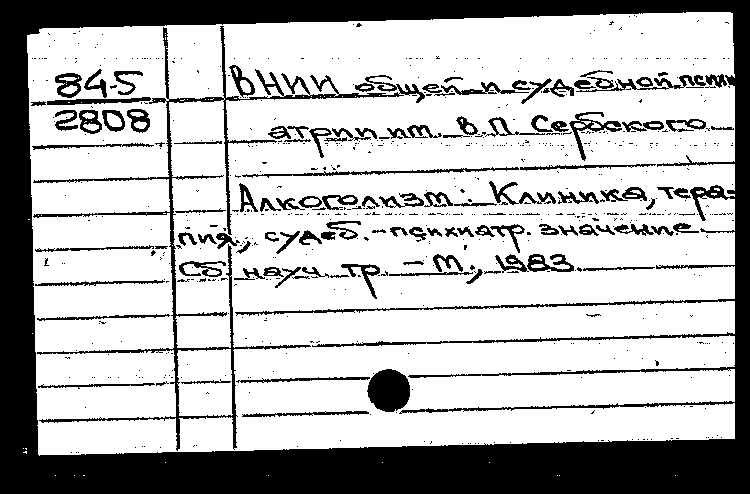 84-5
2808
ВНИИ общей и судебной психи
атрии им. В.П. Сербского
Алкоголизм: Клиника, тера-
пия, судеб.-психиатр. значение.
Сб. науч. тр. – М., 1983.